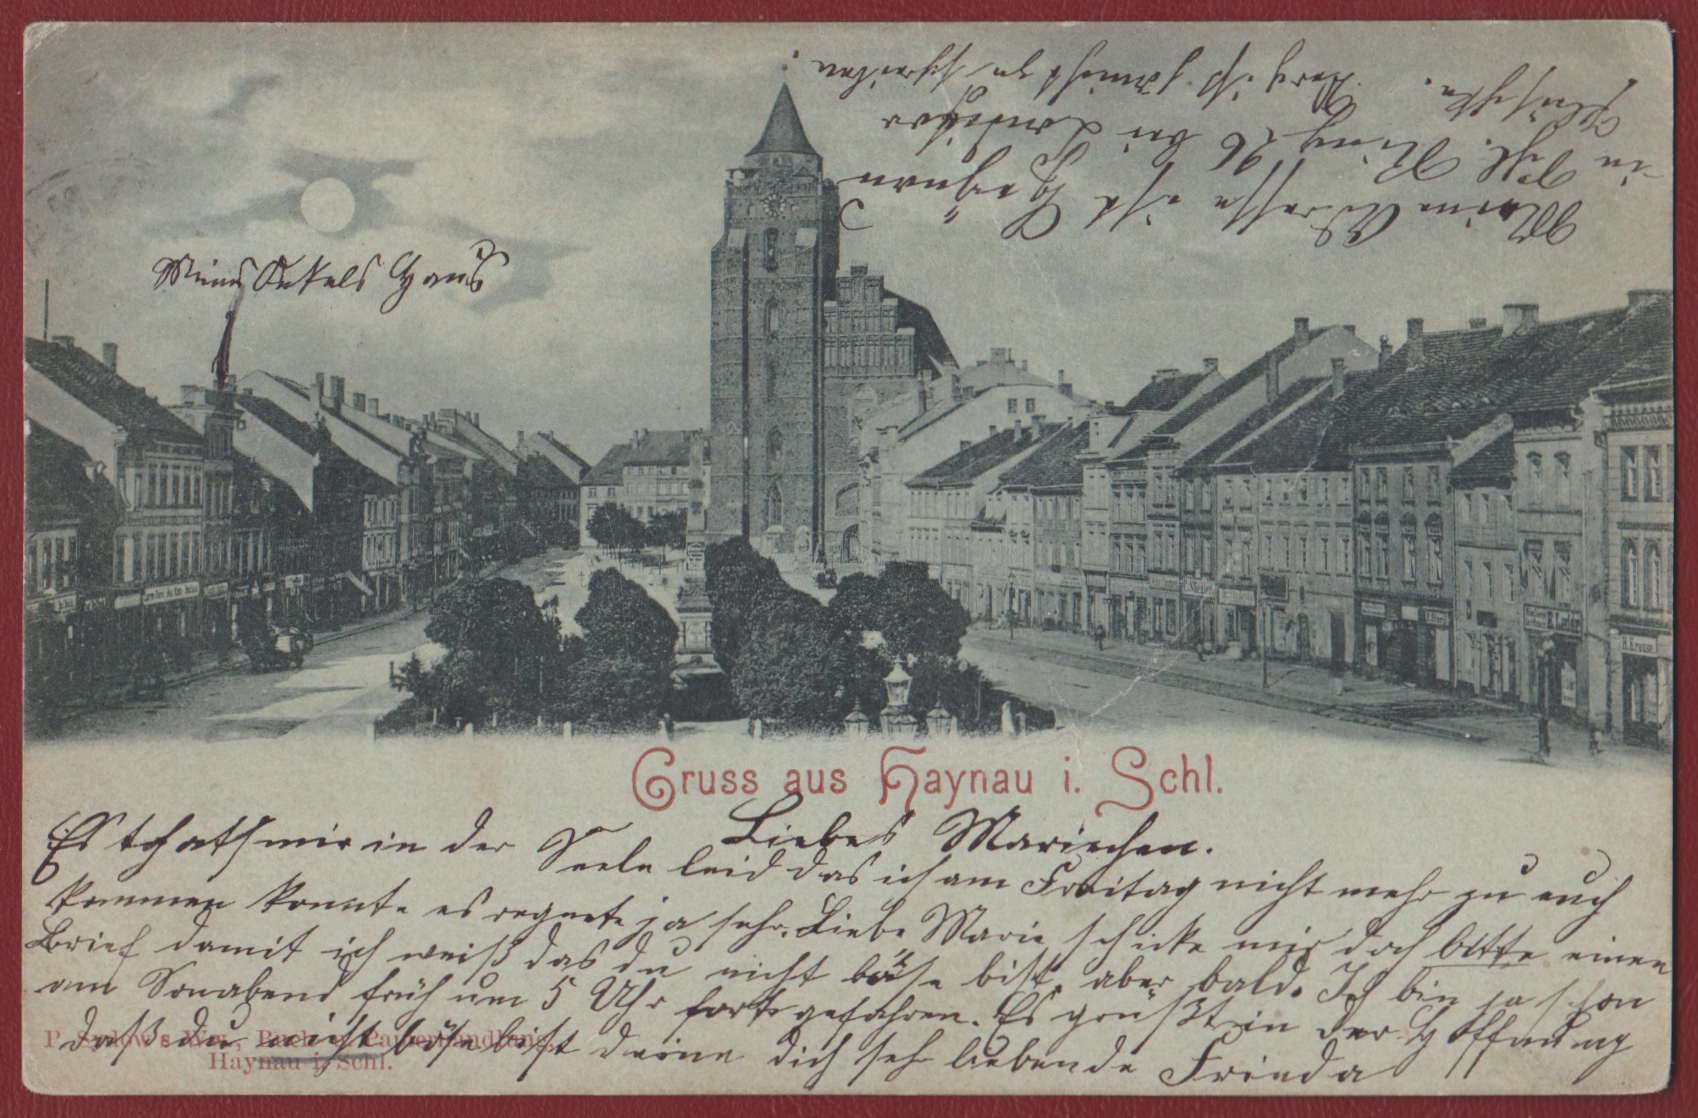 Meine Adresse ist Haynau
in Schl. Ring 26 bei
schreiben.
Meines Onkels Haus
H. Krause.
Gruss aus Haynau i. Schl.
Liebes Mariechen.
Es that mir in der Seele leid das ich am Freitag nicht mehr zu euch
kommen konnte es regnete ja sehr. Liebe Marie schicke mir doch bitte einen
Brief damit ich weiß das du nicht böse bist, aber bald. Ich bin ja schon
am Sonabend früh um 5 Uhr fortgefahren. Es grüßt in der Hoffnung
daß du nicht böse bist deine dich seh liebende Frieda
P. Sydow's Nw., Buch- u. Papierhandlung,
Haynau i. Schl.